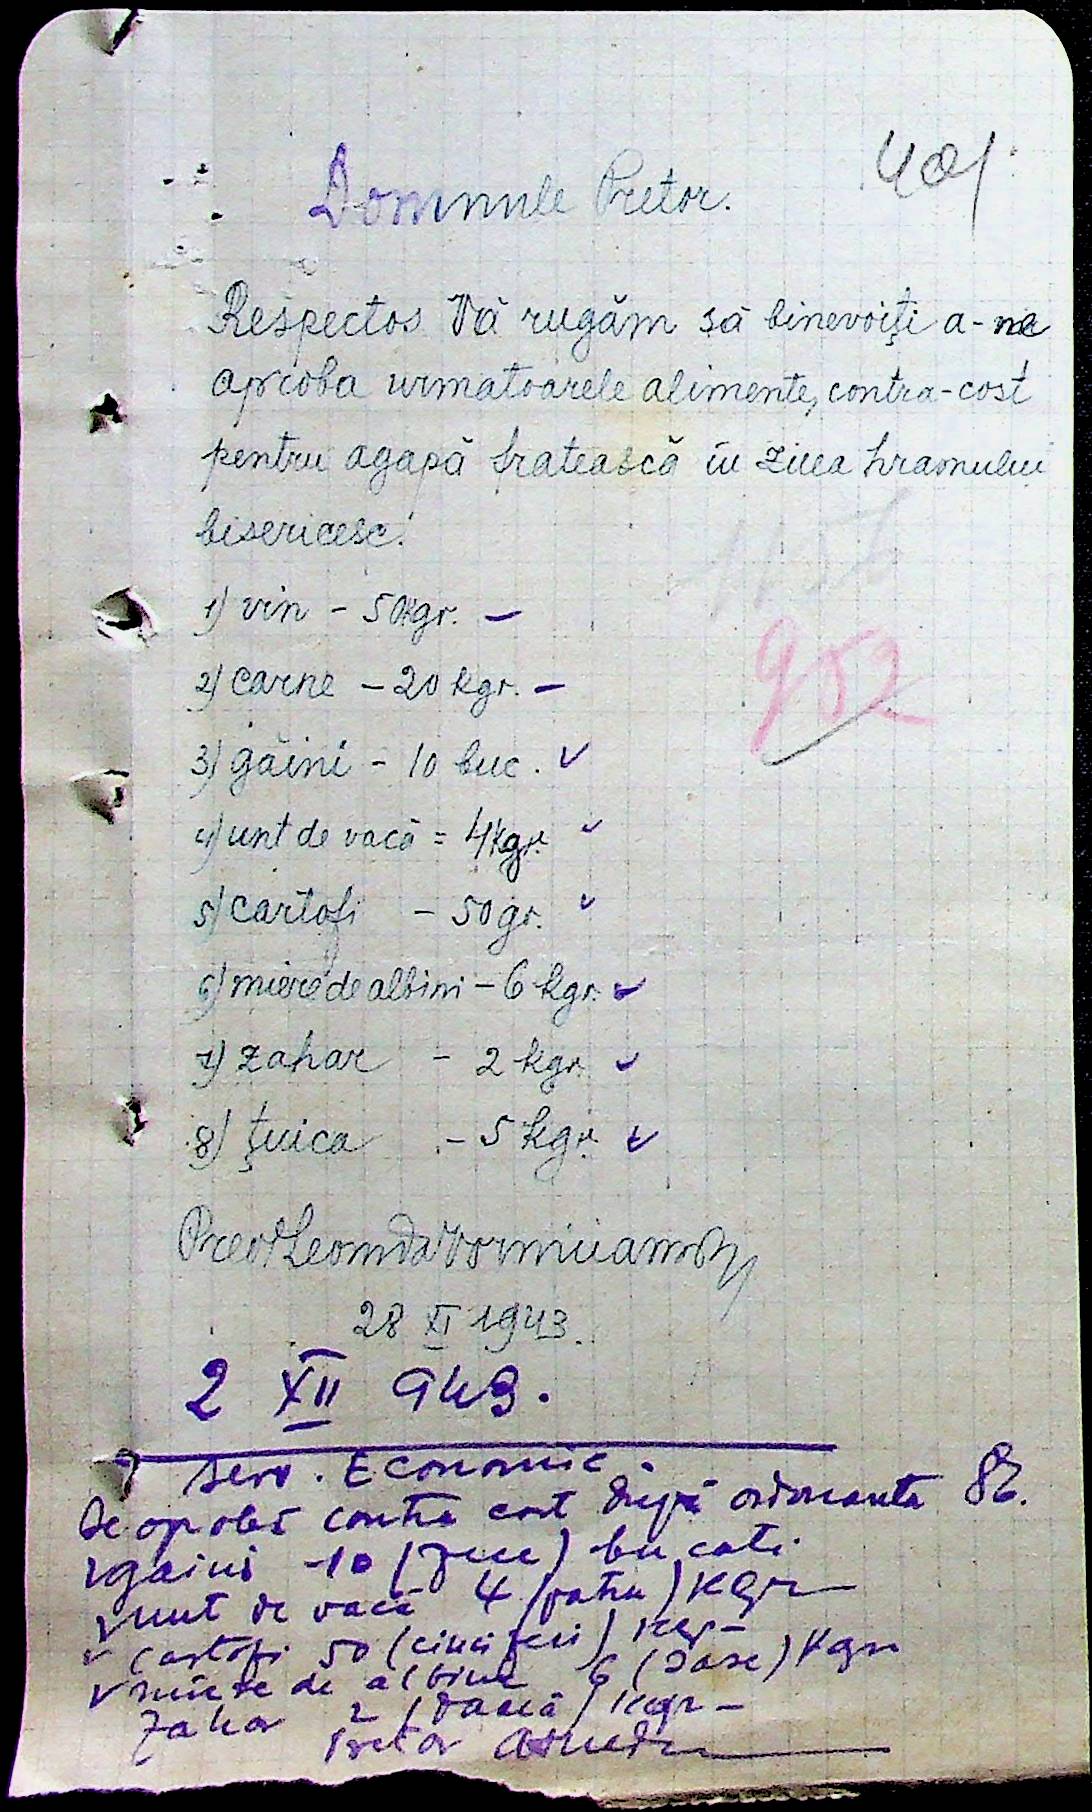 401
Domnule Pretor.
Respectos Vă rugăm să binevoiţi a-ne
aproba urmatoarele alimente, contra-cost
pentru agapă fratească în ziua hramului
bisericesc.
1) vin - 50kgr. -
2) carne - 20 kgr. -
952
3) găini - 10 buc. ✓
4) unt de vacă = 4kgr. ✓
5) cartofi - 50 gr. ✓
6) miere de albini - 6 kgr. ✓
7) zahar - 2 kgr. ✓
8) ţuica - 5 kgr. ✓
Preot Leonida
28 XI 1943.
2 XII 943.
Serv. Economic.
Se aprobă contra cost după ordonanta 82.
✓ găini - 10 (zece) bucati.
✓ unt de vacă 4 (patru) Kgr
✓ cartofi 50 (cinci zeci) Kgr
✓ miere de albine 6 (șase) Kgr
Zahar 2 (două) Kgr
Pretor